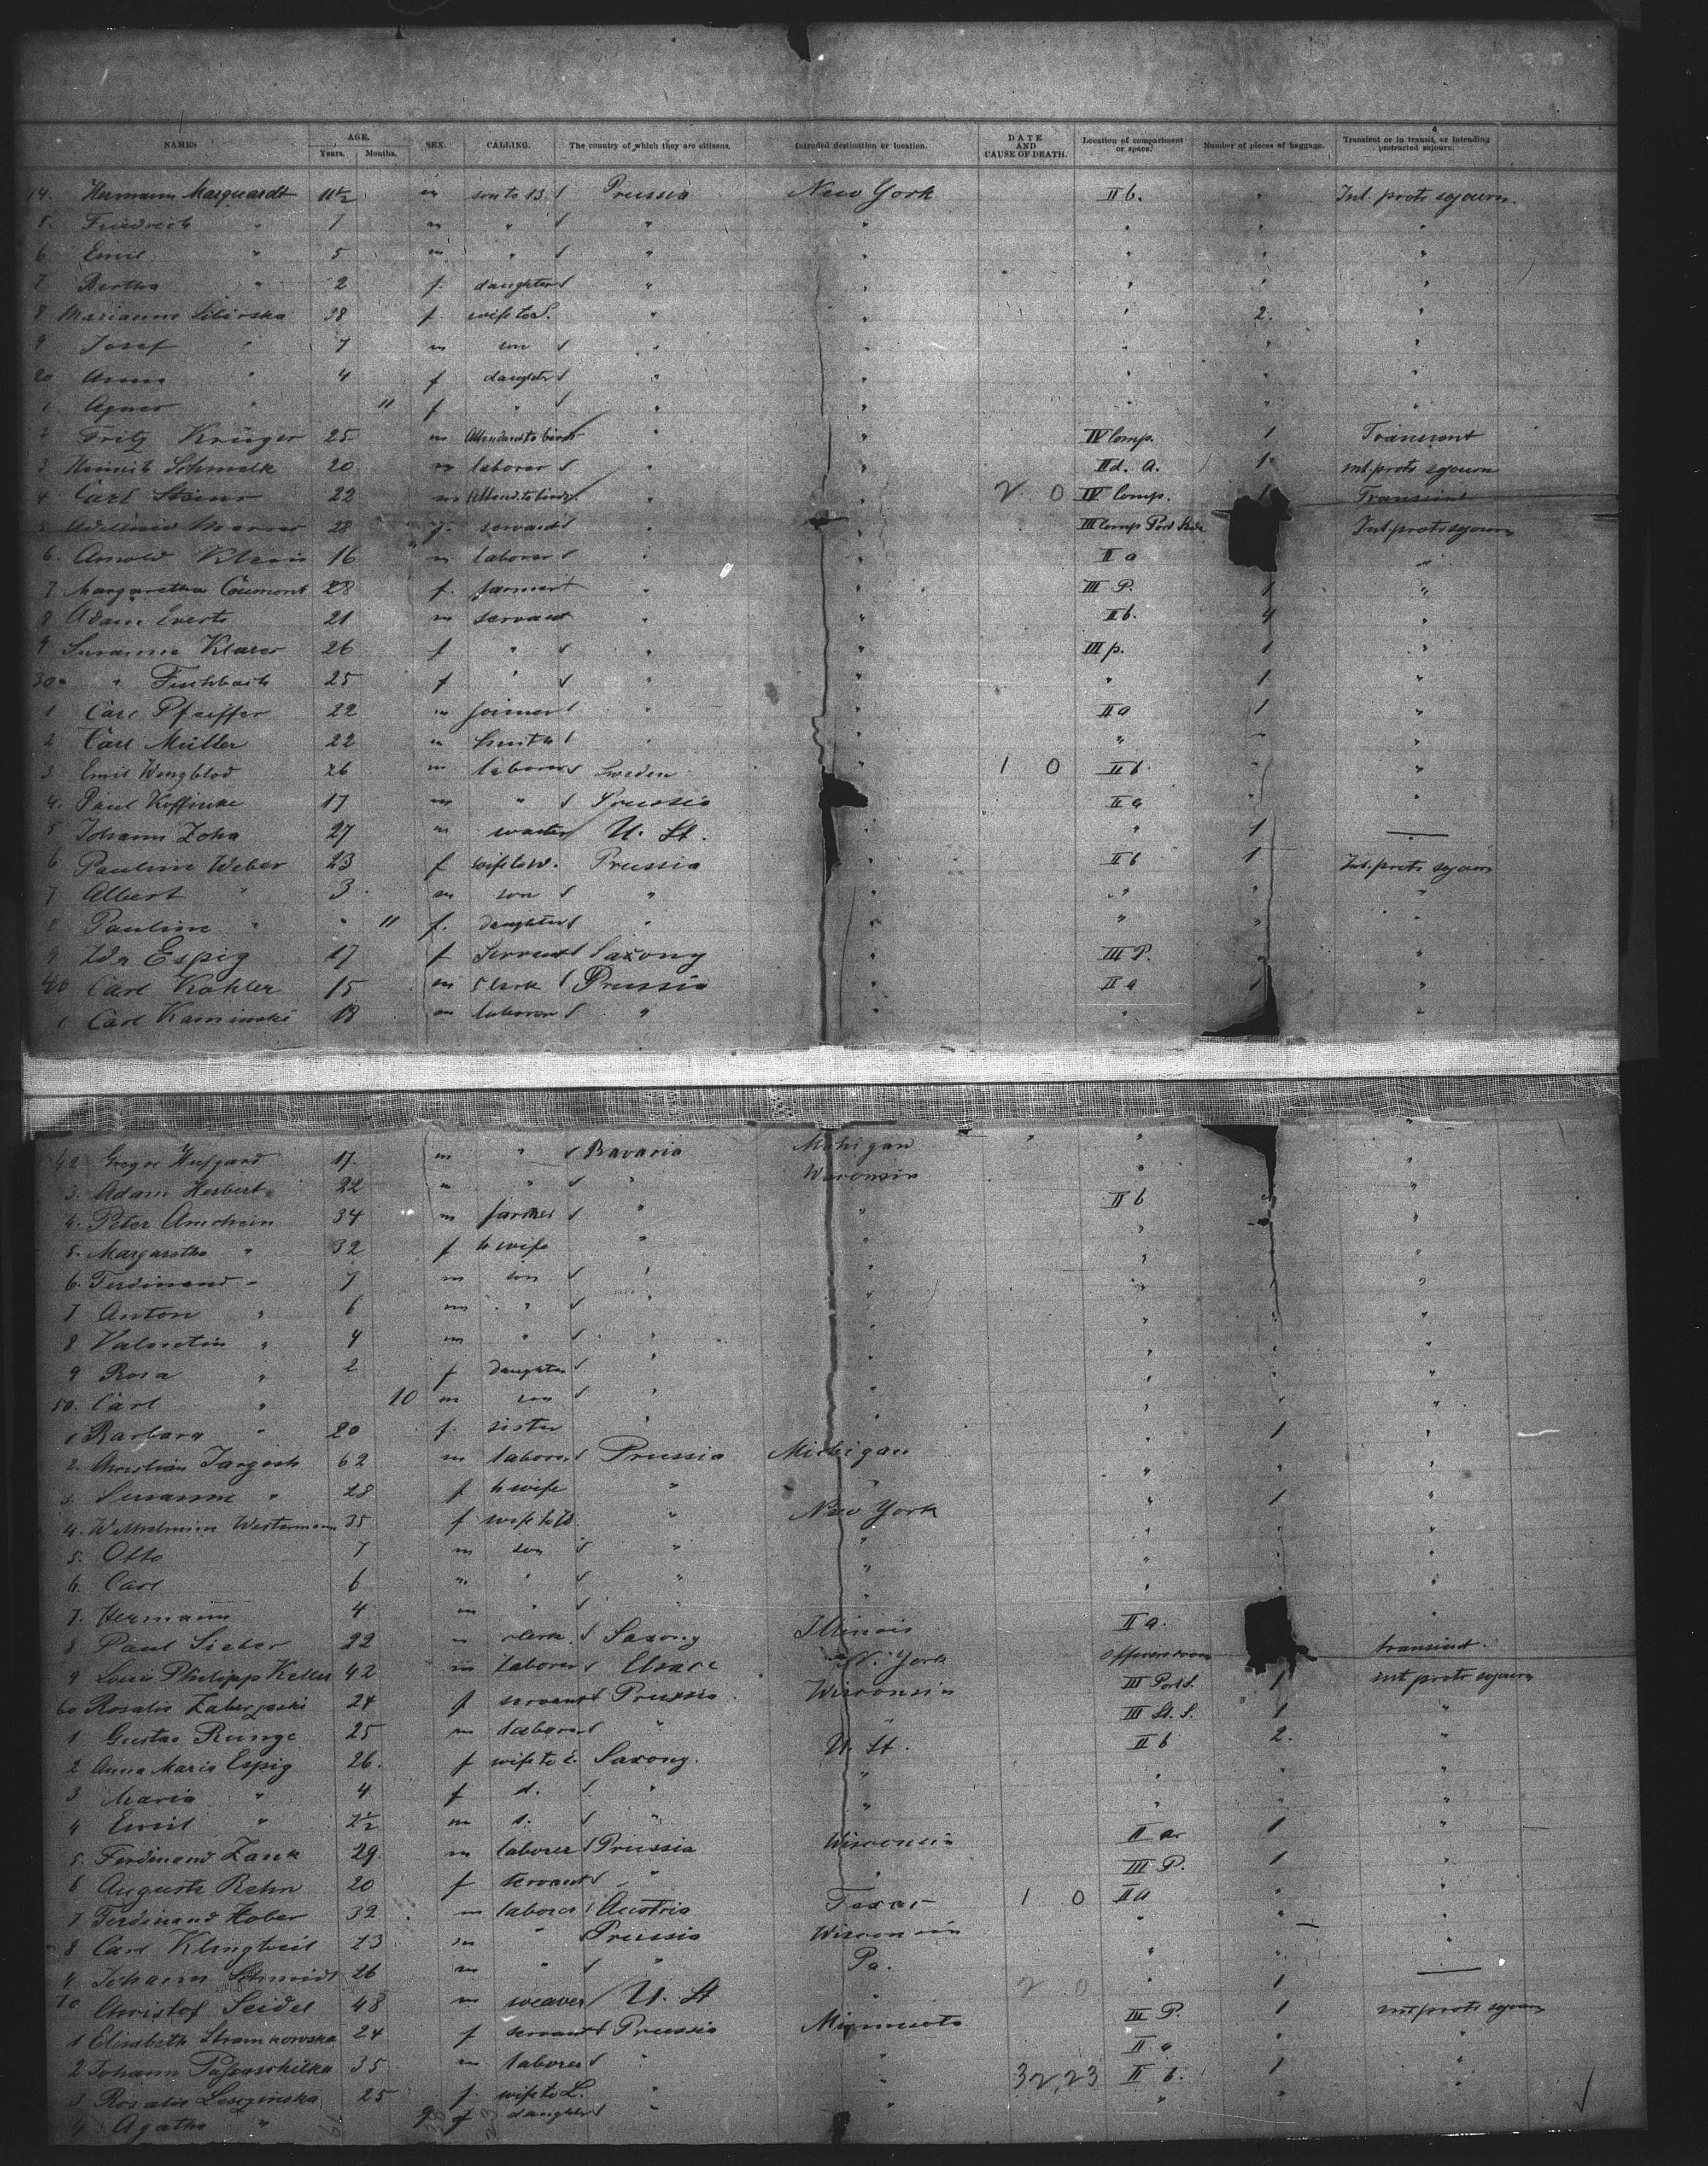 NAMES AGE. Years. Months. SEX. CALLING. The country of which they are citizens. Intended destination or location. DATE AND CAUSE OF DEATH. Location of compartment or space. Number of pieces of baggage. Transient or in transit, or intending protracted sojourn.
14. Hermann Marquardt 11½ m son to 13. Prussia New York II b. " Int. protr sojourn.
5. Friedrich " 7 m " " " " " "
6 Emil " 5 m " " " " " "
7 Bertha " 2 f. daughter " " " " "
8 Marianne Sibirska 38 f. wife to S. " " " 2. "
9 Josef " 7 m son " " " " "
20 Anna " 4 f daughter " " " " "
1 Agnes " 11 f " " " " " "
2 Fritz Krüger 25 m " " IV Comp. 1 Transient
3 Heinrich Schmelk 20 m laborer " " II d. a. 1 int. protr sojourn
4 Carl 22 m " " 2 0 IV Comp. 1 Transient
5 28 f. servant " " III Comp Port Side Int. protr sojourn
6. Arnold Klein 16 m laborer " " II a "
7 Margaretha Caumont 28 f. farmer " " III P. 1 "
8 Adam Everts 21 m servant " " II b. 4 "
9 Susanna Klaes 26 f " " " III p. 1 "
30 " Fischbach 25 f " " " " 1 "
1 Carl Pfeiffer 22 m joiner " " II a 1 "
2 Carl Müller 22 m smith " " " " "
3 Emil Wengblod 26 m laborer Sweden " 1 0 II b " "
4. Paul Koffinke 17 m " Prussia " II a " "
5 Johann Zoha 27 m waiter U. St. " " 1 —
6 Pauline Weber 23 f wife to W. Prussia " II b 1 Int. protr sojourn
7 Albert " 3 m son " " " " "
8 Pauline " " 11 f. daughter " " " " "
9 Ida Espig 17 f Servant Saxony " III P. " "
40 Carl Kohler 15 m clerk Prussia " II a 1 "
1 Carl Kaminski 18 m laborer " " " "
42 Gregor Hufgard 17. m " Bavaria Michigan " " "
3. Adam Herbert 22 m " " Wisconsin " "
4. Peter Amrhein 34 m farmer " " II b " "
5. Margaretha " 32 f h wife " " " "
6. Ferdinand " 7 m son " " " "
7 Anton " 6 m " " " " "
8 Valentin " 4 m " " " " "
9 Rosa " 2 f daughter " " " "
50. Carl " 10 m son " " " "
1 Barbara " 20 f. sister " " " 1 "
2. Christian Jargosch 62 m laborer Prussia Michigan " " "
3. Susanne " 28 f h wife " " " 1 "
4. Wilhelmine Westermann 35 f wife to W. " New York " " "
5. Otto 7 m son " " " "
6. Carl 6 m " " " " "
7. Hermann 4 m " " " "
8 Paul Sieber 22 m clerk Saxony Illinois II a. transient.
9 Louis Philipp Keller 42 m laborer Elsace N. York Officersroom 1 int protr sojourn
60 Rosalie 24 f servant Prussia Wisconsin III Port S. 1 "
1 Gustav Runge 25 m laborer " " III St. S. 2. "
2 Anna Maria Espig 26. f wife to E. Saxony. U. St. II b " "
3 Maria " 4 f d. " " " " "
4 Emil " 2½ m s. " " " 1 "
5. Ferdinand Zank 29. m laborer Prussia Wisconsin II a 1 "
6 Auguste Rehn 20 f servant " " III P. " "
7 Ferdinand Hober 32 m laborer Austria Texas 1 0 II a " "
8 Carl Klingbeil 23 m " Prussia Wisconsin " " "
9 Johann Schmidt 26 m " " Pa. " 1 "
70 Christof Seidel 48 m weaver U. St " 2 0 " 1 —
1 Elisabeth Stramkowska 24 f servant Prussia Minnesota III P. " int protr sojourn
2 Johann 35 m laborer " " II a 1 "
3 Rosalie Lesczinska 25 f. wife to L. " " 32,23 II b. " "
4 Agatha " 9 f daughter " " "